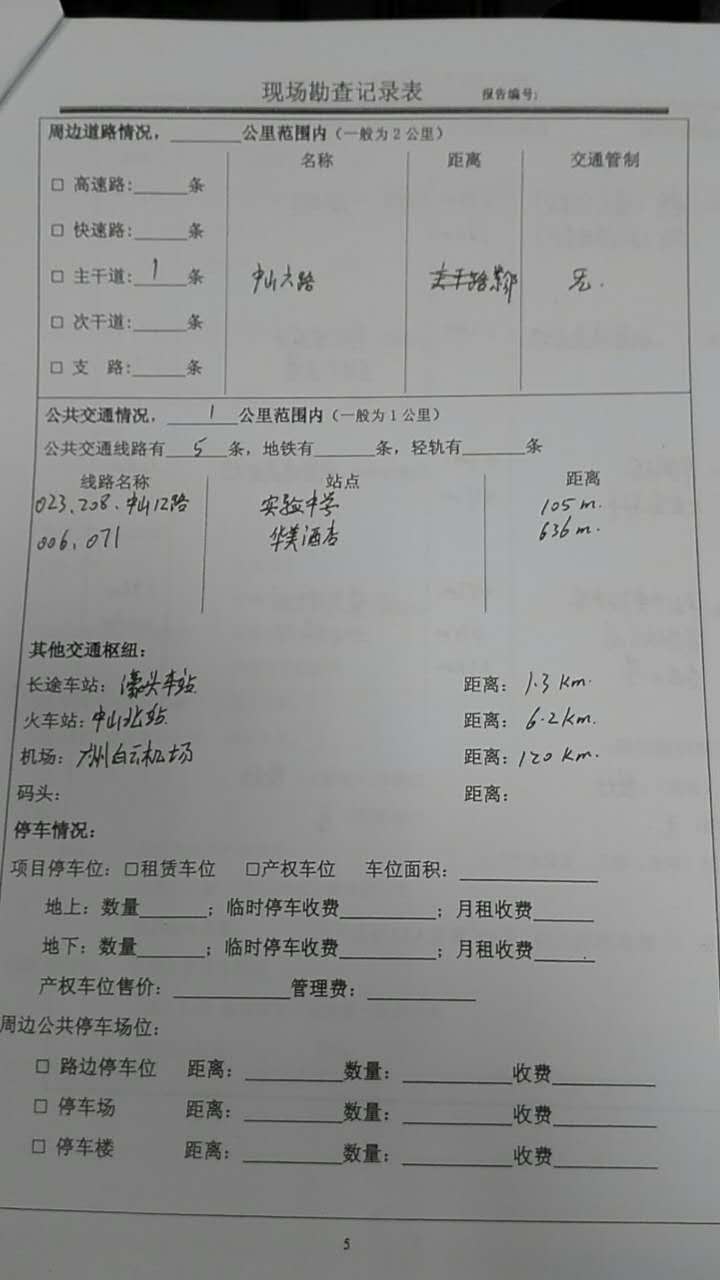 现场勘查记录表 报告编号:
周边道路情况，______公里范围内（一般为2公里）
名称 距离 交通管制
□ 高速路:_____条
□ 快速路:_____条
□ 主干道: 1 条 中山六路 紧邻 无.
□ 次干道:_____条
□ 支 路:_____条
公共交通情况， 1 公里范围内（一般为1公里）
公共交通线路有 5 条，地铁有______条，轻轨有______条
线路名称 站点 距离
023、208、中山12路 实验中学 105 m.
006、071 华美酒店 636 m.
其他交通枢纽：
长途车站：濠头车站 距离：1.3 Km.
火车站：中山北站 距离：6.2 Km.
机场：广州白云机场 距离：120 Km.
码头： 距离：
停车情况：
项目停车位：□租赁车位 □产权车位 车位面积：____________
地上：数量______；临时停车收费________；月租收费_____
地下：数量______；临时停车收费________；月租收费_____
产权车位售价：__________管理费：_________
周边公共停车场位：
□ 路边停车位 距离：________数量：_________收费_________
□ 停车场 距离：________数量：_________收费_________
□ 停车楼 距离：________数量：_________收费_________
5